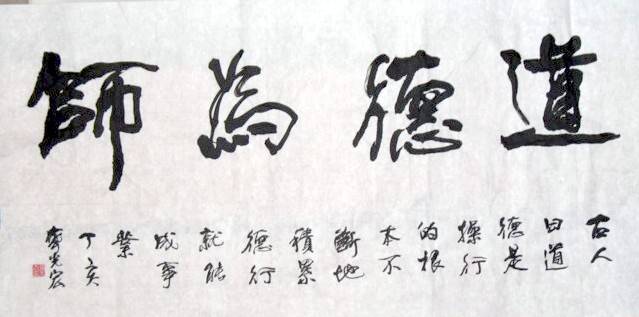 道德為師
古人
曰道
德是
操行
的根
本不
斷地
積累
德行
就能
成事
業
丁亥